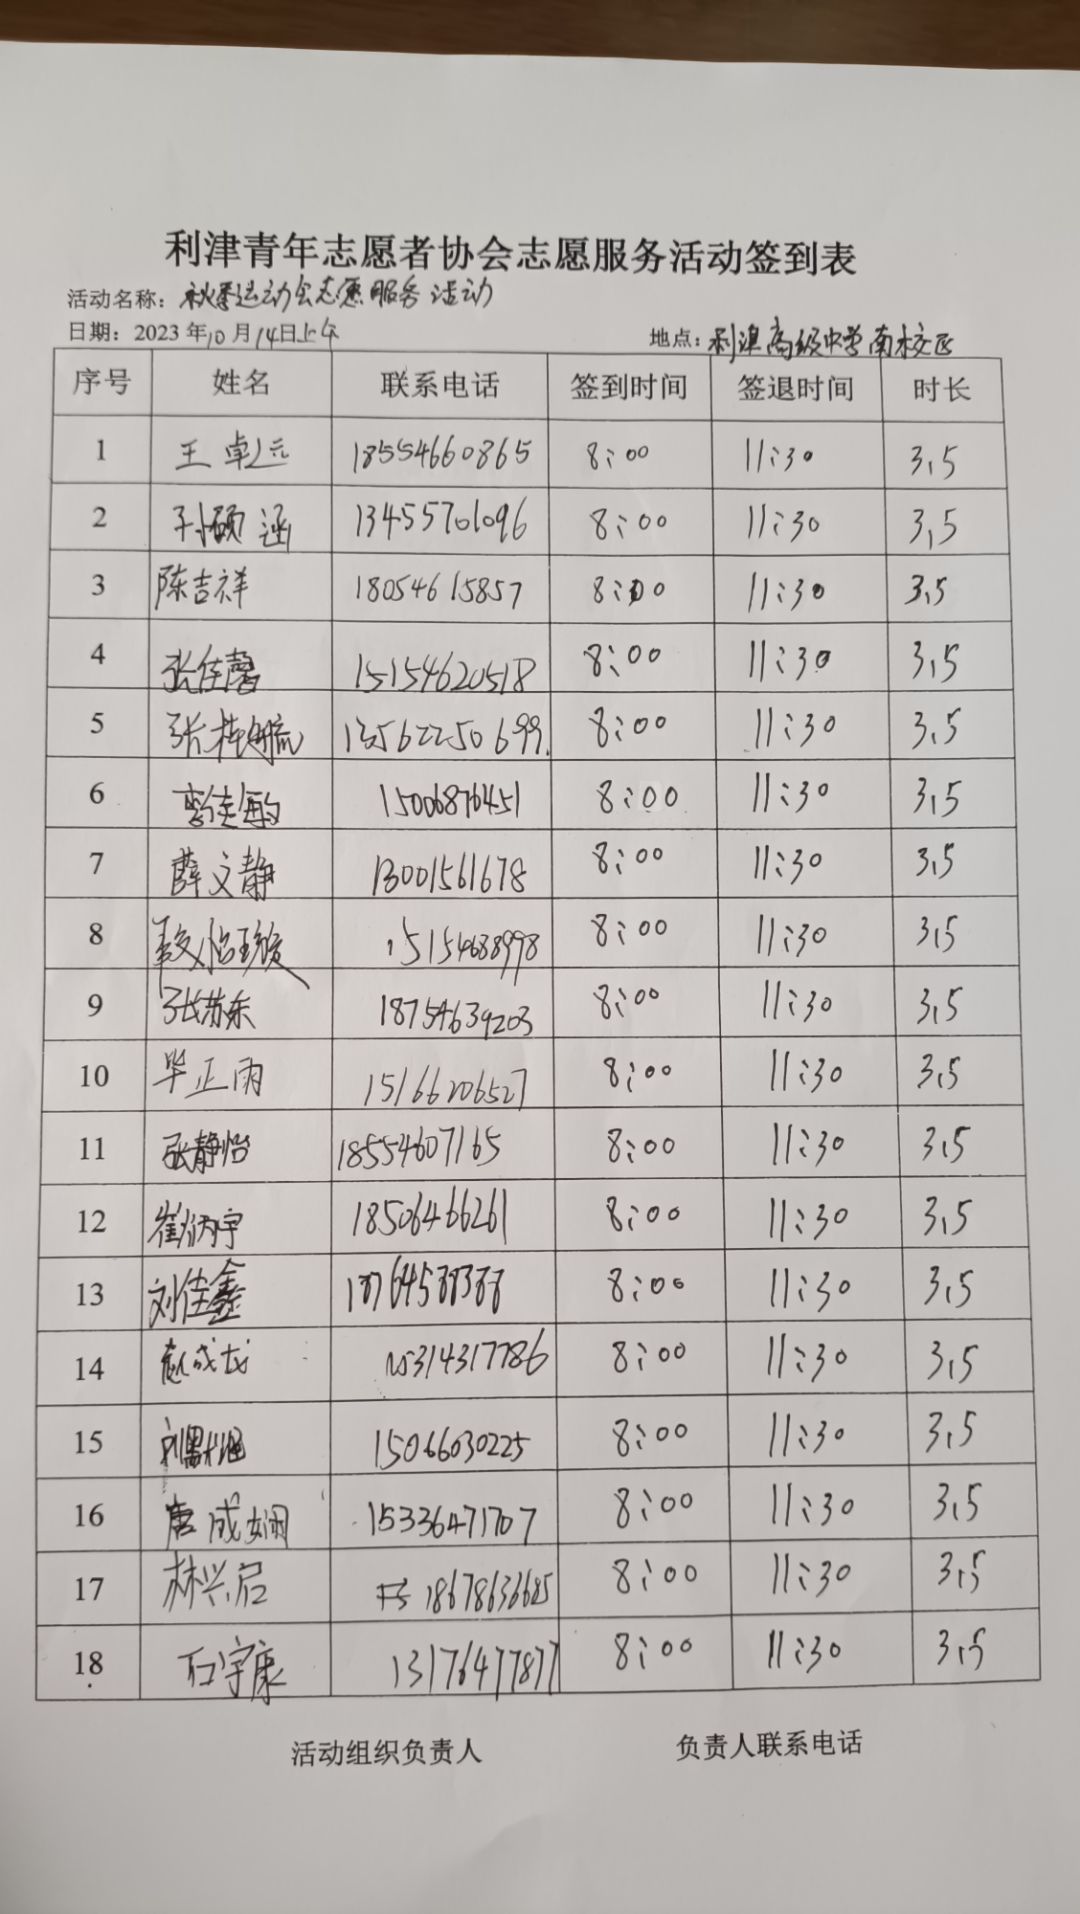 利津青年志愿者协会志愿服务活动签到表
活动名称：秋季运动会志愿服务活动
日期：2023年10月14日上午 地点：利津高级中学南校区
序号 姓名 联系电话 签到时间 签退时间 时长
1 王卓远 18554660865 8:00 11:30 3.5
2 孙硕涵 13455701096 8:00 11:30 3.5
3 陈吉祥 18054615857 8:00 11:30 3.5
4 张佳馨 15154620518 8:00 11:30 3.5
5 13562250699 8:00 11:30 3.5
6 15006876451 8:00 11:30 3.5
7 薛文静 13001561678 8:00 11:30 3.5
8 15154688998 8:00 11:30 3.5
9 张苏东 18754639203 8:00 11:30 3.5
10 毕正雨 15166206527 8:00 11:30 3.5
11 张静怡 18554607165 8:00 11:30 3.5
12 崔炳宇 18506466261 8:00 11:30 3.5
13 刘佳鑫 8:00 11:30 3.5
14 赵成龙 15314317786 8:00 11:30 3.5
15 15066030225 8:00 11:30 3.5
16 唐成娴 15336471707 8:00 11:30 3.5
17 林兴启 18678636685 8:00 11:30 3.5
18 石宇康 13176477877 8:00 11:30 3.5
活动组织负责人 负责人联系电话